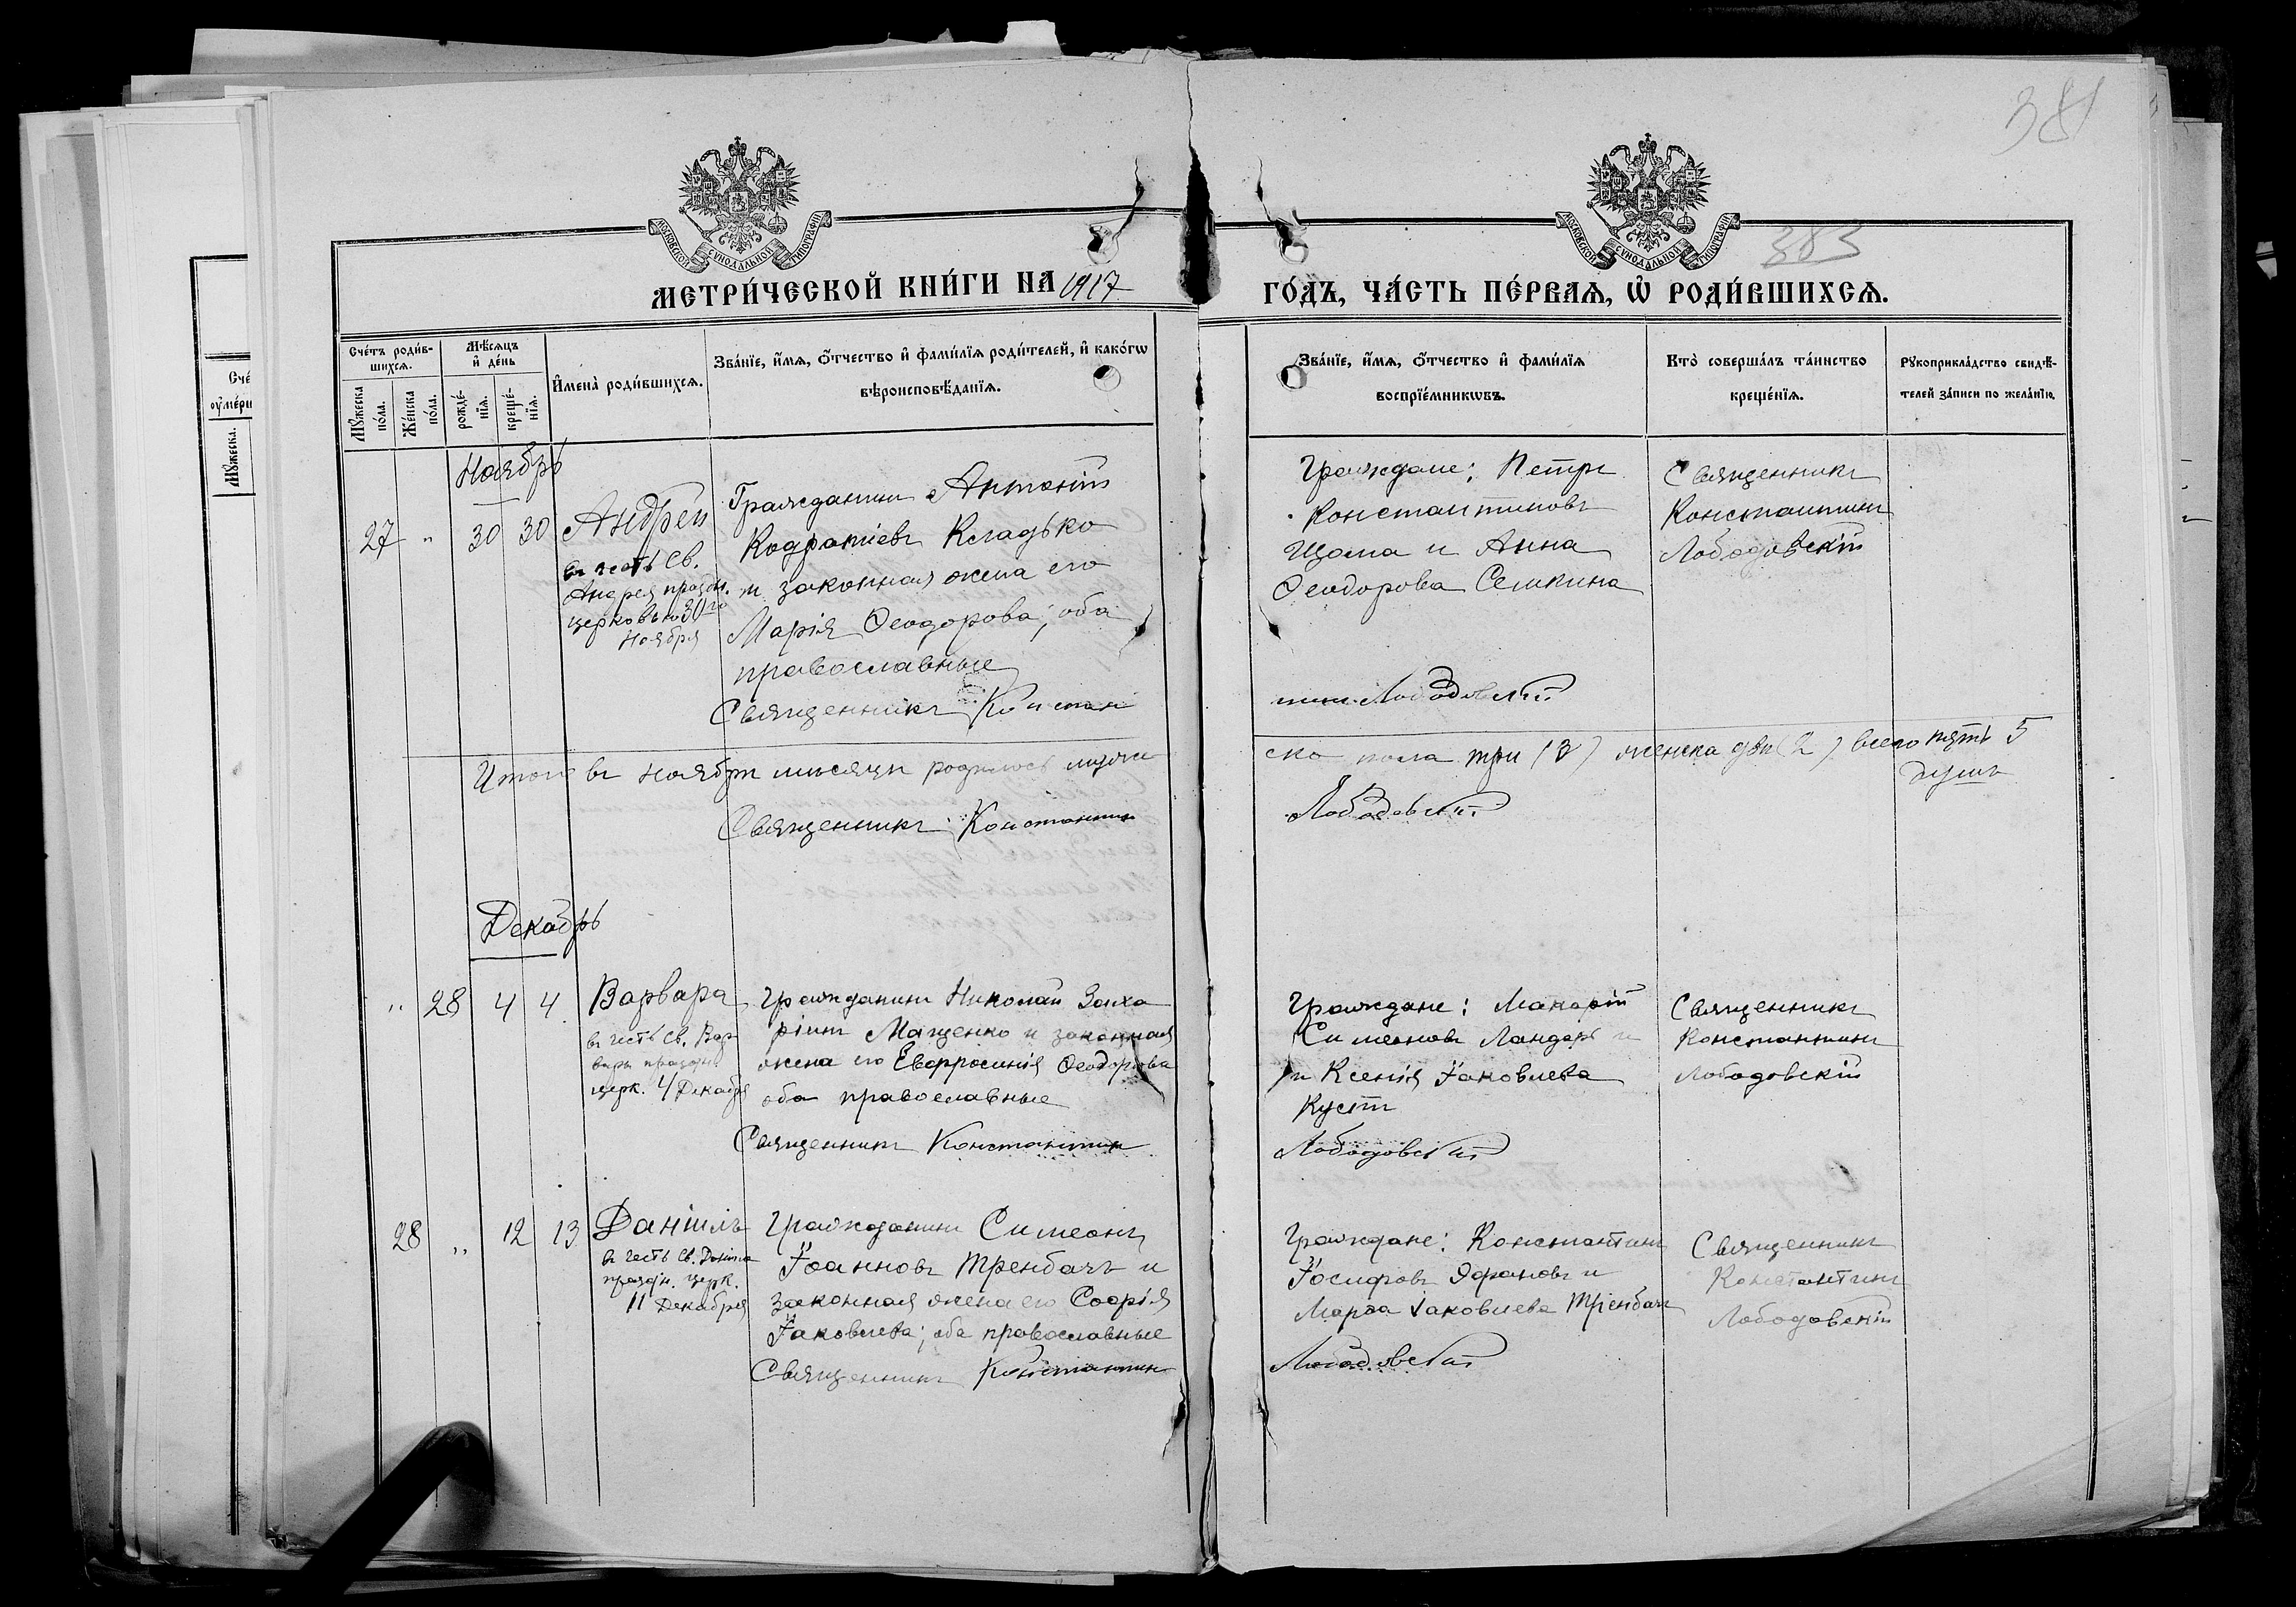 381
383
МОСКОВСКОЙ СѴНОДАЛЬНОЙ ТИПОГРАФІИ
МОСКОВСКОЙ СѴНОДАЛЬНОЙ ТИПОГРАФІИ
МЕТРИ́ЧЕСКОЙ КНИ́ГИ НА 1917
ГО́ДЪ, ЧА́СТЬ ПЕ́РВАѦ, Ѡ҆ РОДИ́ВШИХСѦ.
Сче́тъ роди́в-
шихсѧ.
Мꙋ́жеска по́ла.
Же́нска по́ла.
Мѣ́сѧцъ
и҆ де́нь
рожде́-
нїѧ.
креще́-
нїѧ.
И҆мена̀ роди́вшихсѧ.
Зва́нїе, и҆́мѧ, ѻ҆́тчество и҆ фами́лїѧ роди́телей, и҆ како́гѡ
вѣроисповѣ́данїѧ.
Зва́нїе, и҆́мѧ, ѻ҆́тчество и҆ фами́лїѧ
воспрїе́мникѡвъ.
Кто̀ соверша́лъ та́инство
креще́нїѧ.
Рꙋкоприкла́дство свидѣ́-
телей за́писи по жела́нїю.
Сче́
оу҆ме́рш
Мꙋ́жеска.
Ноябрь
27 " 30 30
Андрей
въ честь св.
Андрея праздн.
церковью 30го
Ноября
Гражданинъ Антоній
Кодратіевъ Кладько
и законная жена его
Марія Ѳеодорова; оба
православные
Священникъ Констан
Граждане: Петръ
Константиновъ
Щома и Анна
Ѳеодорова Семкина
тинъ Лободовскій
Священникъ
Константинъ
Лободовскій
Итого въ Ноябрѣ мѣсяцѣ родилось мужe
ско пола три (3) женска два (2) всего пять 5
душъ
Священникъ Константинъ
Лободовскій
Декабрь
" 28 4 4
Варвара
въ честь св. Вар
вары праздн.
церк. 4 Декабря
Гражданинъ Николай Заха
ріинъ Мащенко и законная
жена его Евфросинія Ѳеодорова
оба православные
Священникъ Константинъ
Граждане: Макарій
Симеоновъ Ландарь и
и Ксенія Іаковлева
Кустъ
Лободовскій
Священникъ
Константинъ
Лободовскій
28 " 12 13
Даніилъ
въ честь св. Даніила
праздн. церк.
11 Декабря
Гражданинъ Симеонъ
Іоанновъ Трембачъ и
законная жена его Софія
Іаковлева; оба православные
Священникъ Константинъ
Граждане: Константинъ
Іосифовъ и
Марѳа Іаковлева Трембачъ
Лободовскій
Священникъ
Константинъ
Лободовскій